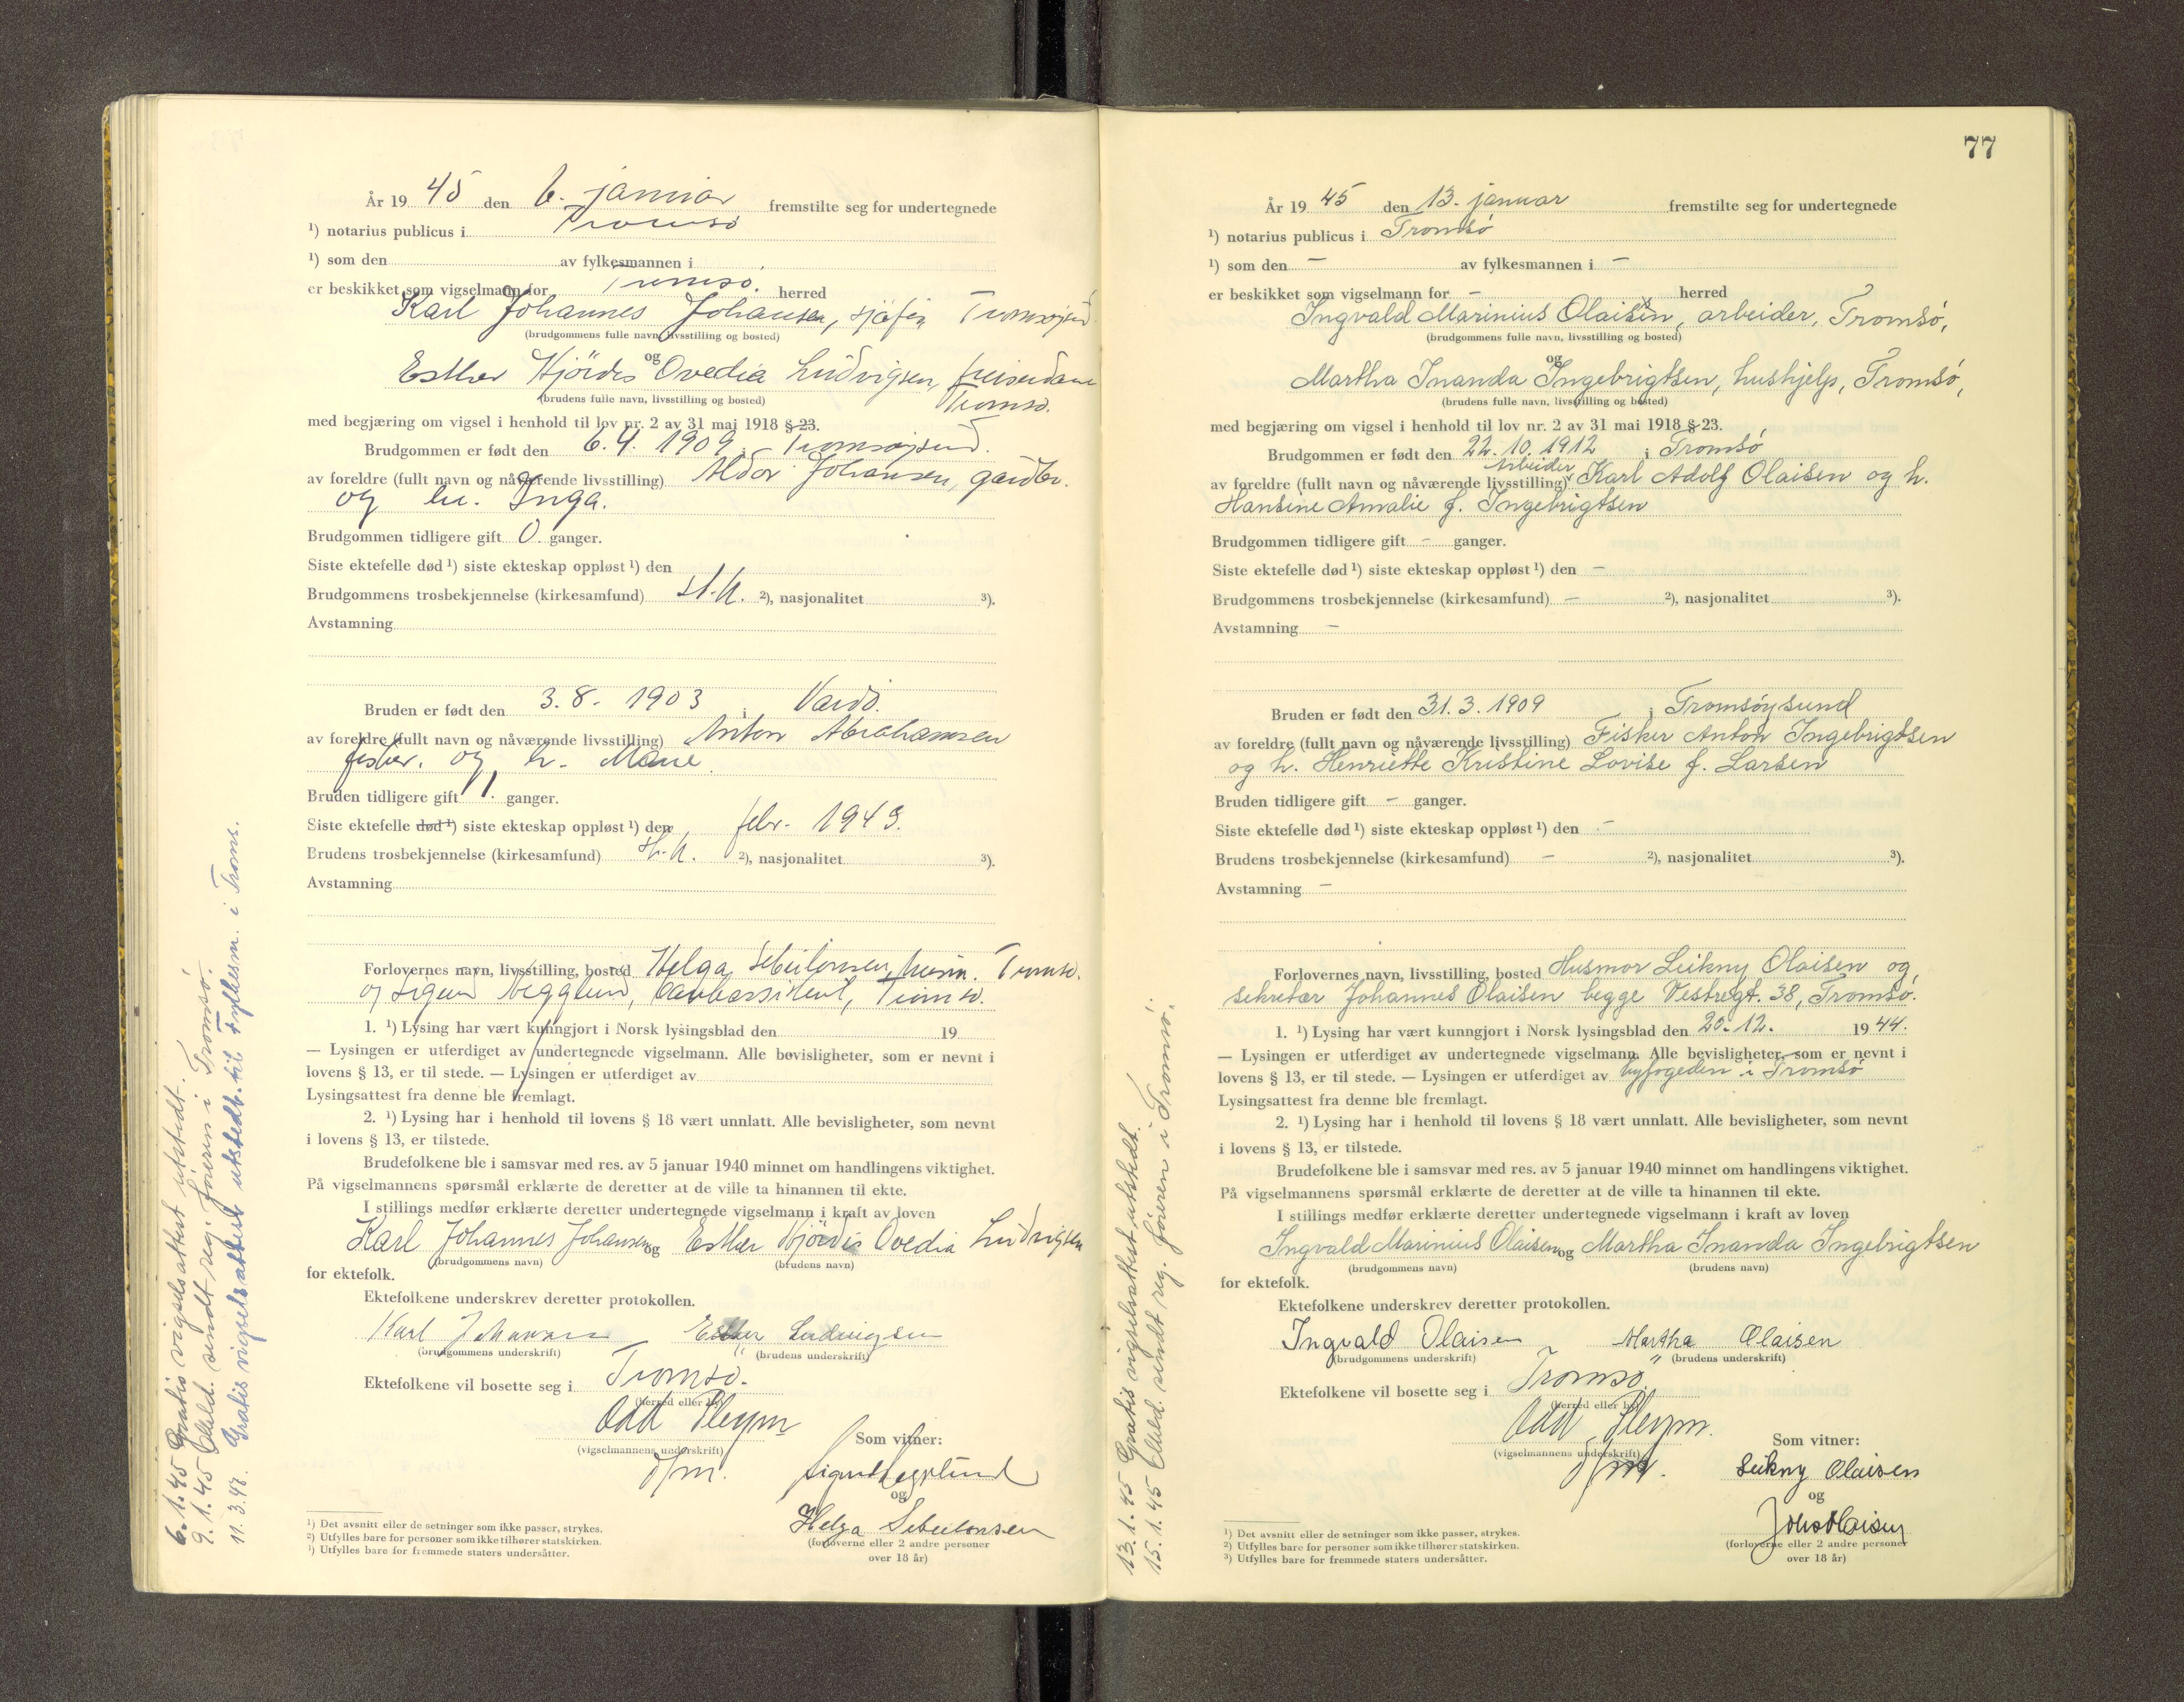 År 19 45 den 6. januar fremstilte seg for undertegnede
1) notarius publicus i Tromsö
1) som den av fylkesmannen i
er beskikket som vigselmann for Tromsö. herred
Karl Johannes Johansen, sjåfør, Tromsøysund
(brudgommens fulle navn, livsstilling og bosted)
og
Esther Hjördis Ovedia Ludvigsen, Tromsö.
(brudens fulle navn, livsstilling og bosted)
med begjæring om vigsel i henhold til lov nr. 2 av 31 mai 1918 § 23.
Brudgommen er født den 6.4.1909 i Tromsøysund.
av foreldre (fullt navn og nåværende livsstilling) Aldor Johansen, gårdbr.
og hu. Inga.
Brudgommen tidligere gift 0. ganger.
Siste ektefelle død 1) siste ekteskap oppløst 1) den
Brudgommens trosbekjennelse (kirkesamfund) st.k. 2), nasjonalitet 3).
Avstamning
Bruden er født den 3.8.1903 i Vardö.
av foreldre (fullt navn og nåværende livsstilling) Anton Abrahamsen
fisker. og h. Marie
Bruden tidligere gift 1. ganger.
Siste ektefelle død 1) siste ekteskap oppløst 1) den febr. 1943.
Brudens trosbekjennelse (kirkesamfund) st.k. 2), nasjonalitet 3).
Avstamning
Forlovernes navn, livsstilling, bosted Helga Tromsö.
og Tromsö.
1. 1) Lysing har vært kunngjort i Norsk lysingsblad den 19
— Lysingen er utferdiget av undertegnede vigselmann. Alle bevisligheter, som er nevnt i
lovens § 13, er til stede. — Lysingen er utferdiget av
Lysingsattest fra denne ble fremlagt.
2. 1) Lysing har i henhold til lovens § 18 vært unnlatt. Alle bevisligheter, som nevnt
i lovens § 13, er tilstede.
Brudefolkene ble i samsvar med res. av 5 januar 1940 minnet om handlingens viktighet.
På vigselmannens spørsmål erklærte de deretter at de ville ta hinannen til ekte.
I stillings medfør erklærte deretter undertegnede vigselmann i kraft av loven
Karl Johannes Johansen og Esther Hjördis Ovedia Ludvigsen
(brudgommens navn) (brudens navn)
for ektefolk.
Ektefolkene underskrev deretter protokollen.
Karl Johansen Esther Ludvigsen
(brudgommens underskrift) (brudens underskrift)
Ektefolkene vil bosette seg i Tromsö.
(herred eller by)
Odd Pleym
(vigselmannens underskrift)
d/m.
Som vitner:
og
Helga
(forloverne eller 2 andre personer
over 18 år)
1) Det avsnitt eller de setninger som ikke passer, strykes.
2) Utfylles bare for personer som ikke tilhører statskirken.
3) Utfylles bare for fremmede staters undersåtter.
6.1.45 Gratis vigselsattest utstedt.
9.1.45 sendt reg. föreren i Tromsö.
11.3.47. Gratis vigselsattest utstedt til Fyllesm. i Troms.
77
År 19 45 den 13. januar fremstilte seg for undertegnede
1) notarius publicus i Tromsö
1) som den – av fylkesmannen i –
er beskikket som vigselmann for – herred
Ingvald Marinius Olaisen, arbeider, Tromsö,
(brudgommens fulle navn, livsstilling og bosted)
og
Martha Inanda Ingebrigtsen, hushjelp, Tromsö,
(brudens fulle navn, livsstilling og bosted)
med begjæring om vigsel i henhold til lov nr. 2 av 31 mai 1918 § 23.
Brudgommen er født den 22.10.1912 i Tromsö
av foreldre (fullt navn og nåværende livsstilling) Arbeider Karl Adolf Olaisen og h.
Hansine Amalie f. Ingebrigtsen
Brudgommen tidligere gift – ganger.
Siste ektefelle død 1) siste ekteskap oppløst 1) den –
Brudgommens trosbekjennelse (kirkesamfund) – 2), nasjonalitet 3).
Avstamning –
Bruden er født den 31.3.1909 i Tromsöysund
av foreldre (fullt navn og nåværende livsstilling) Fisker Anton Ingebrigtsen
og h. Henriette Kristine Lovise f. Larsen
Bruden tidligere gift – ganger.
Siste ektefelle død 1) siste ekteskap oppløst 1) den –
Brudens trosbekjennelse (kirkesamfund) – 2), nasjonalitet 3).
Avstamning –
Forlovernes navn, livsstilling, bosted Husmor Leikny Olaisen og
sekretær Johannes Olaisen begge Vestregt. 38, Tromsö.
1. 1) Lysing har vært kunngjort i Norsk lysingsblad den 20.12. 19 44.
— Lysingen er utferdiget av undertegnede vigselmann. Alle bevisligheter, som er nevnt i
lovens § 13, er til stede. — Lysingen er utferdiget av byfogeden i Tromsö
Lysingsattest fra denne ble fremlagt.
2. 1) Lysing har i henhold til lovens § 18 vært unnlatt. Alle bevisligheter, som nevnt
i lovens § 13, er tilstede.
Brudefolkene ble i samsvar med res. av 5 januar 1940 minnet om handlingens viktighet.
På vigselmannens spørsmål erklærte de deretter at de ville ta hinannen til ekte.
I stillings medfør erklærte deretter undertegnede vigselmann i kraft av loven
Ingvald Marinius Olaisen og Martha Inanda Ingebrigtsen
(brudgommens navn) (brudens navn)
for ektefolk.
Ektefolkene underskrev deretter protokollen.
Ingvald Olaisen Martha Olaisen
(brudgommens underskrift) (brudens underskrift)
Ektefolkene vil bosette seg i Tromsö
(herred eller by)
Odd Pleym.
(vigselmannens underskrift)
Som vitner:
Leikny Olaisen
og
Johs Olaisen
(forloverne eller 2 andre personer
over 18 år)
1) Det avsnitt eller de setninger som ikke passer, strykes.
2) Utfylles bare for personer som ikke tilhører statskirken.
3) Utfylles bare for fremmede staters undersåtter.
13.1.45 Gratis vigselsattest utstedt.
15.1.45 sendt reg. föreren i Tromsö.